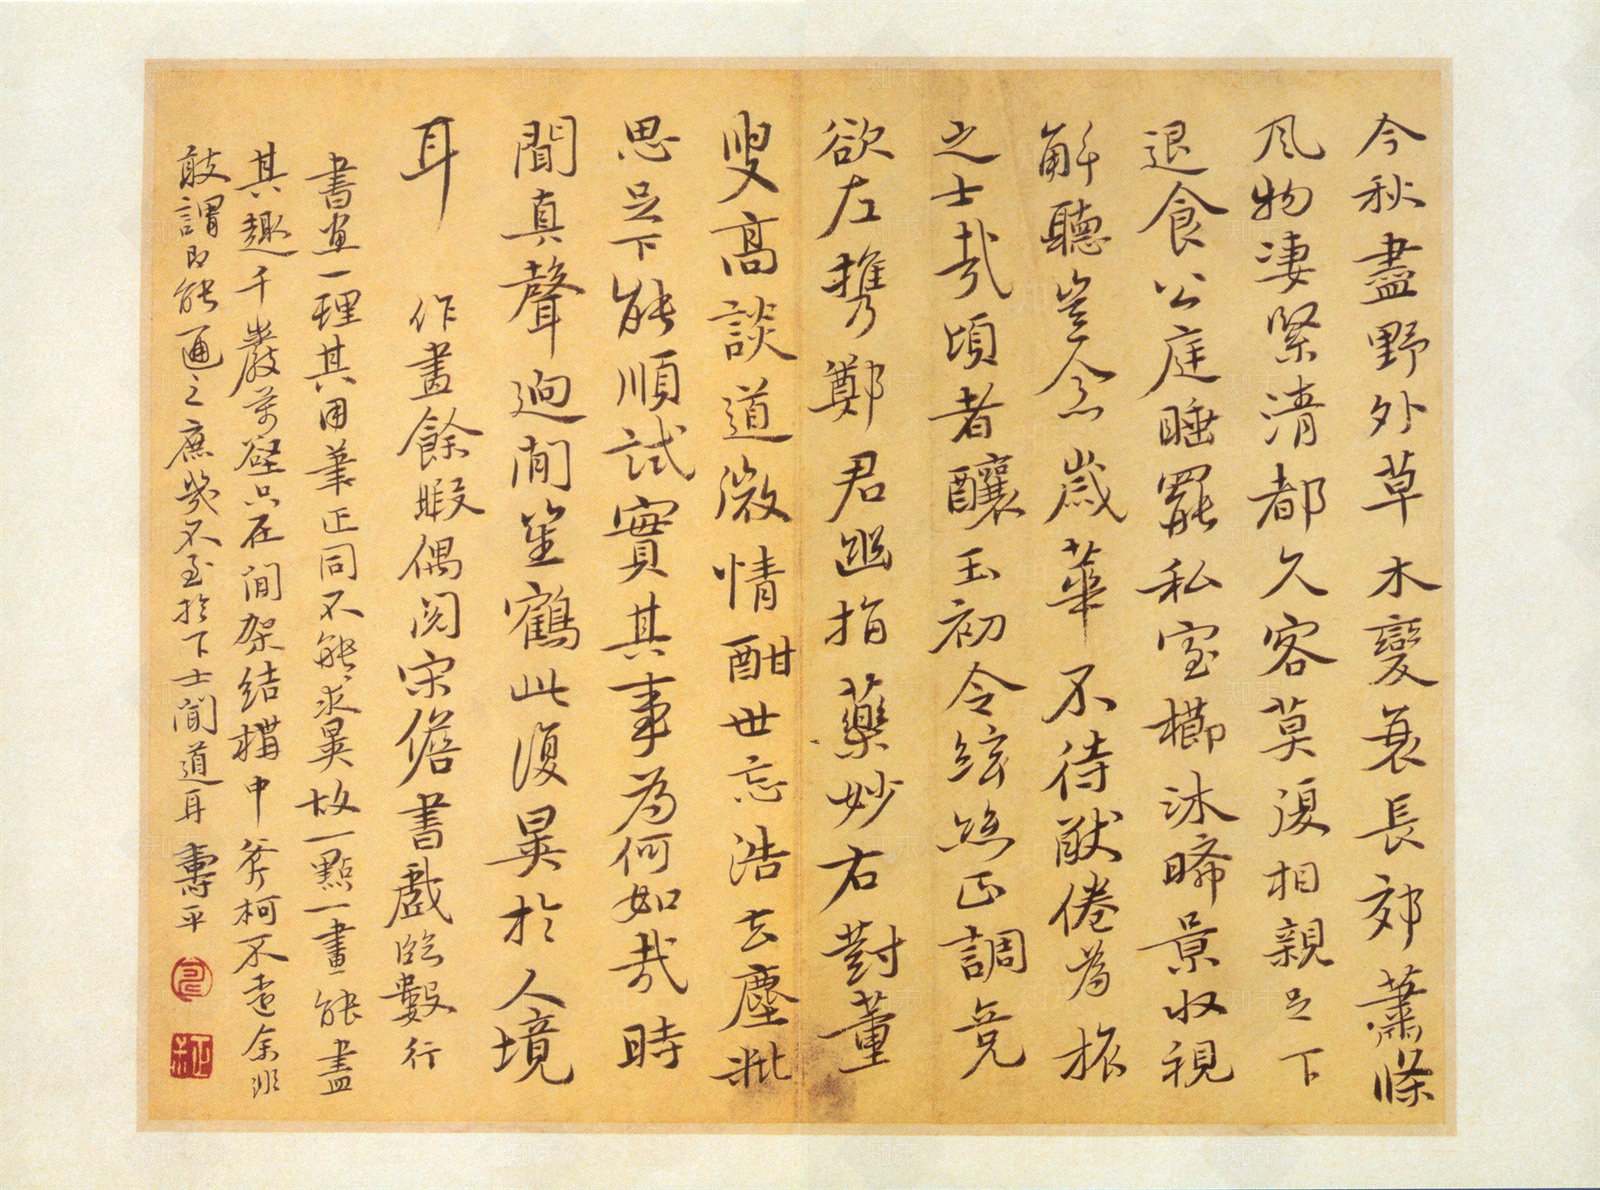 今秋盡野外草木變衰長郊蕭條
風物淒緊清都久客莫復相親足下
退食公庭睡罷私室櫛沐晞景收視
解聽豈念歲華不待猷倦為振
之士哉頃者釀玉初令絃絲正調竟
欲左攜鄭君幽指藥妙右對董
叟高談道微情酣世忘浩去塵粃
思足下能順試實其事為何如哉時
聞真聲迥間笙鶴此復異於人境
耳 作畫餘暇偶閱宋儋書戲臨數行
書畫一理其用筆正同不能求異故一點一畫能盡
其趣千巖萬壑只在間架結構中斧柯不遠余非
敢謂即能通之庶幾不至於下士聞道耳 壽平